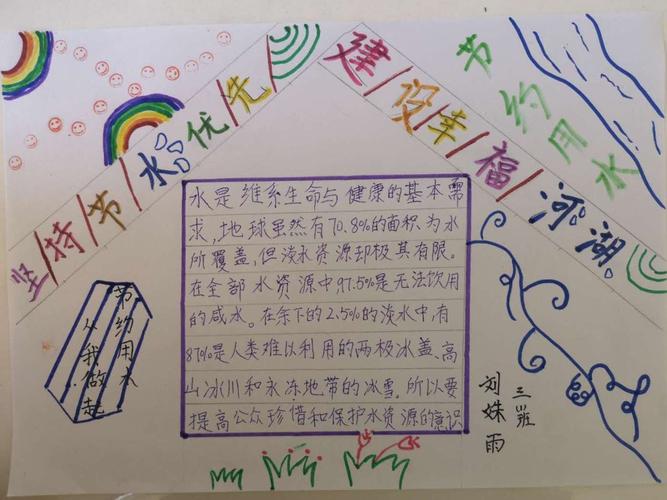 坚持节水优先
建设幸福河湖
节约用水
水是维系生命与健康的基本需
求,地球虽然有70.8%的面积为水
所覆盖,但淡水资源却极其有限。
在全部水资源中97.5%是无法饮用
的咸水。在余下的2.5%的淡水中,有
87%是人类难以利用的两极冰盖、高
山冰川和永冻地带的冰雪。所以要
提高公众珍惜和保护水资源的意识
节约用水
从我做起
三班
刘姝雨